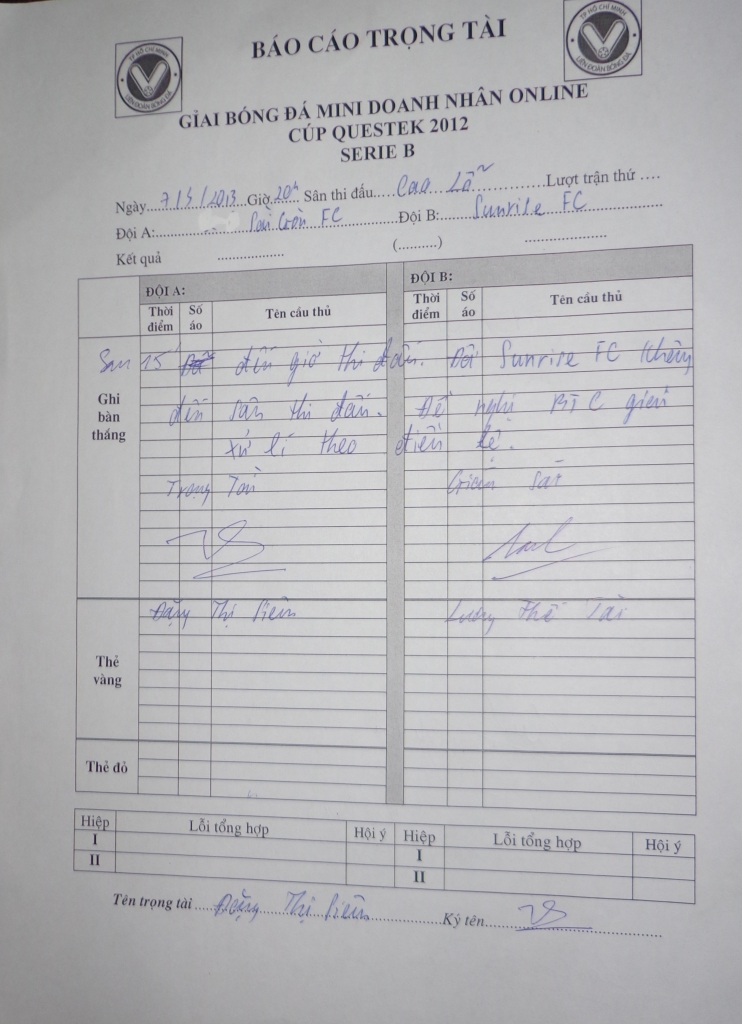 BÁO CÁO TRỌNG TÀI
TP HỒ CHÍ MINH
LIÊN ĐOÀN BÓNG ĐÁ
TP HỒ CHÍ MINH
LIÊN ĐOÀN BÓNG ĐÁ
GIẢI BÓNG ĐÁ MINI DOANH NHÂN ONLINE
CÚP QUESTEK 2012
SERIE B
Ngày 7/5/2013 Giờ 20h Sân thi đấu Cao Lỗ Lượt trận thứ ....
Đội A: Sài Gòn FC Đội B: Sunrise FC
Kết quả ................. (..........) .....................
ĐỘI A: ĐỘI B:
Thời điểm Số áo Tên cầu thủ Thời điểm Số áo Tên cầu thủ
Ghi bàn thắng
Sau 15' đến giờ thi đấu. Đội Sunrise FC không
đến sân thi đấu. Đề nghị BTC giải
xử lí theo điều lệ.
Trọng Tài Giám sát
Thẻ vàng
Đặng Thị Liên Lương Thế Tài
Thẻ đỏ
Hiệp Lỗi tổng hợp Hội ý Hiệp Lỗi tổng hợp Hội ý
I I
II II
Tên trọng tài Đặng Thị Liên Ký tên